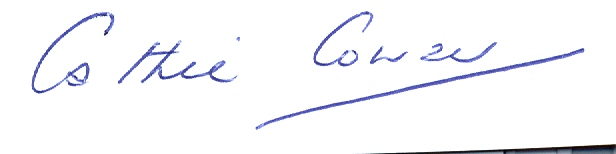 Cathie Cowan